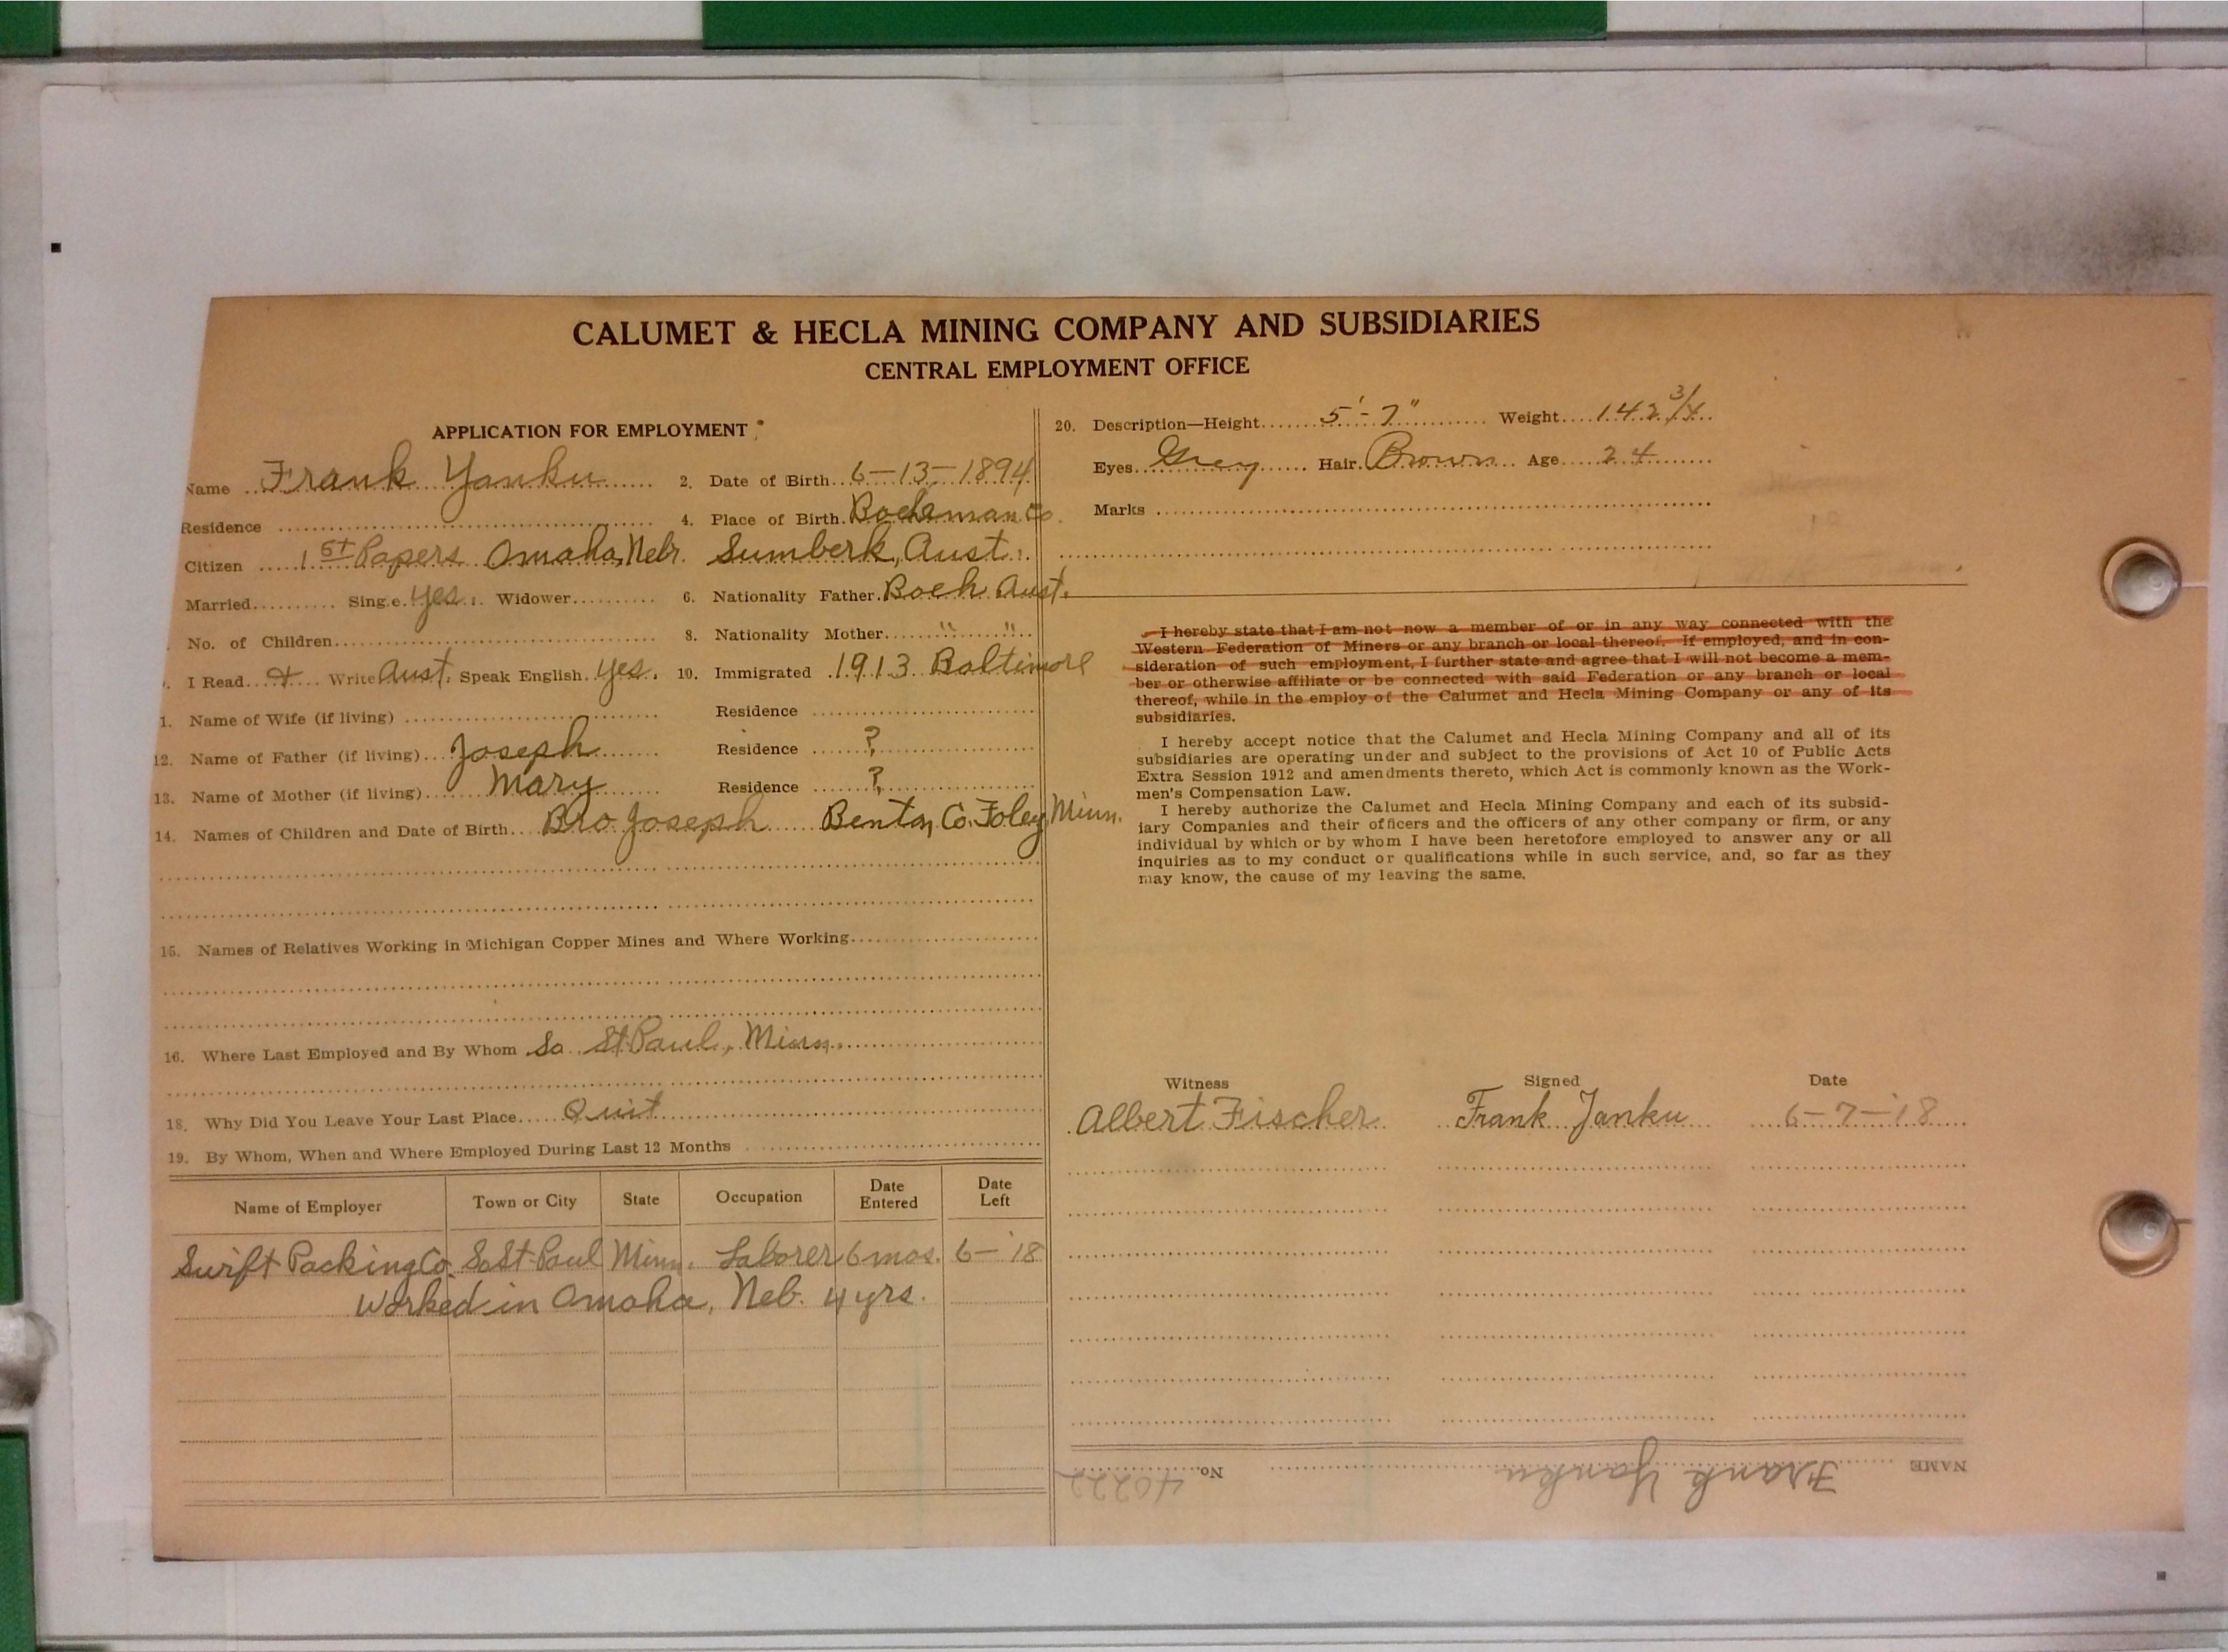 CALUMET & HECLA MINING COMPANY AND SUBSIDIARIES
CENTRAL EMPLOYMENT OFFICE
APPLICATION FOR EMPLOYMENT
Name Frank Yanku 2. Date of Birth 6-13-1894
Residence 4. Place of Birth Bocheman Co.
Citizen 1st Papers Omaha, Nebr. Sumberk, Aust.
Married Single yes. Widower 6. Nationality Father Boeh Aust.
No. of Children 8. Nationality Mother " "
I Read + Write Aust. Speak English yes. 10. Immigrated 1913 Baltimore
1. Name of Wife (if living) Residence
12. Name of Father (if living) Joseph Residence ?
13. Name of Mother (if living) Mary Residence ?
14. Names of Children and Date of Birth Bro Joseph Benton Co. Foley, Minn.
15. Names of Relatives Working in Michigan Copper Mines and Where Working
16. Where Last Employed and By Whom So. St. Paul, Minn.
18. Why Did You Leave Your Last Place Quit
19. By Whom, When and Where Employed During Last 12 Months
Name of Employer Town or City State Occupation Date Entered Date Left
Swift Packing Co. So St Paul Minn. Laborer 6 mos. 6-'18
Worked in Omaha, Neb. 4 yrs.
20. Description—Height 5'-7" Weight 142 3/4
Eyes Grey Hair Brown Age 24
Marks
I hereby state that I am not now a member of or in any way connected with the
Western Federation of Miners or any branch or local thereof. If employed, and in con-
sideration of such employment, I further state and agree that I will not become a mem-
ber or otherwise affiliate or be connected with said Federation or any branch or local
thereof, while in the employ of the Calumet and Hecla Mining Company or any of its
subsidiaries.
I hereby accept notice that the Calumet and Hecla Mining Company and all of its
subsidiaries are operating under and subject to the provisions of Act 10 of Public Acts
Extra Session 1912 and amendments thereto, which Act is commonly known as the Work-
men's Compensation Law.
I hereby authorize the Calumet and Hecla Mining Company and each of its subsid-
iary Companies and their officers and the officers of any other company or firm, or any
individual by which or by whom I have been heretofore employed to answer any or all
inquiries as to my conduct or qualifications while in such service, and, so far as they
may know, the cause of my leaving the same.
Witness Signed Date
Albert Fischer Frank Janku 6-7-'18
NAME Frank Yanku No. 40222